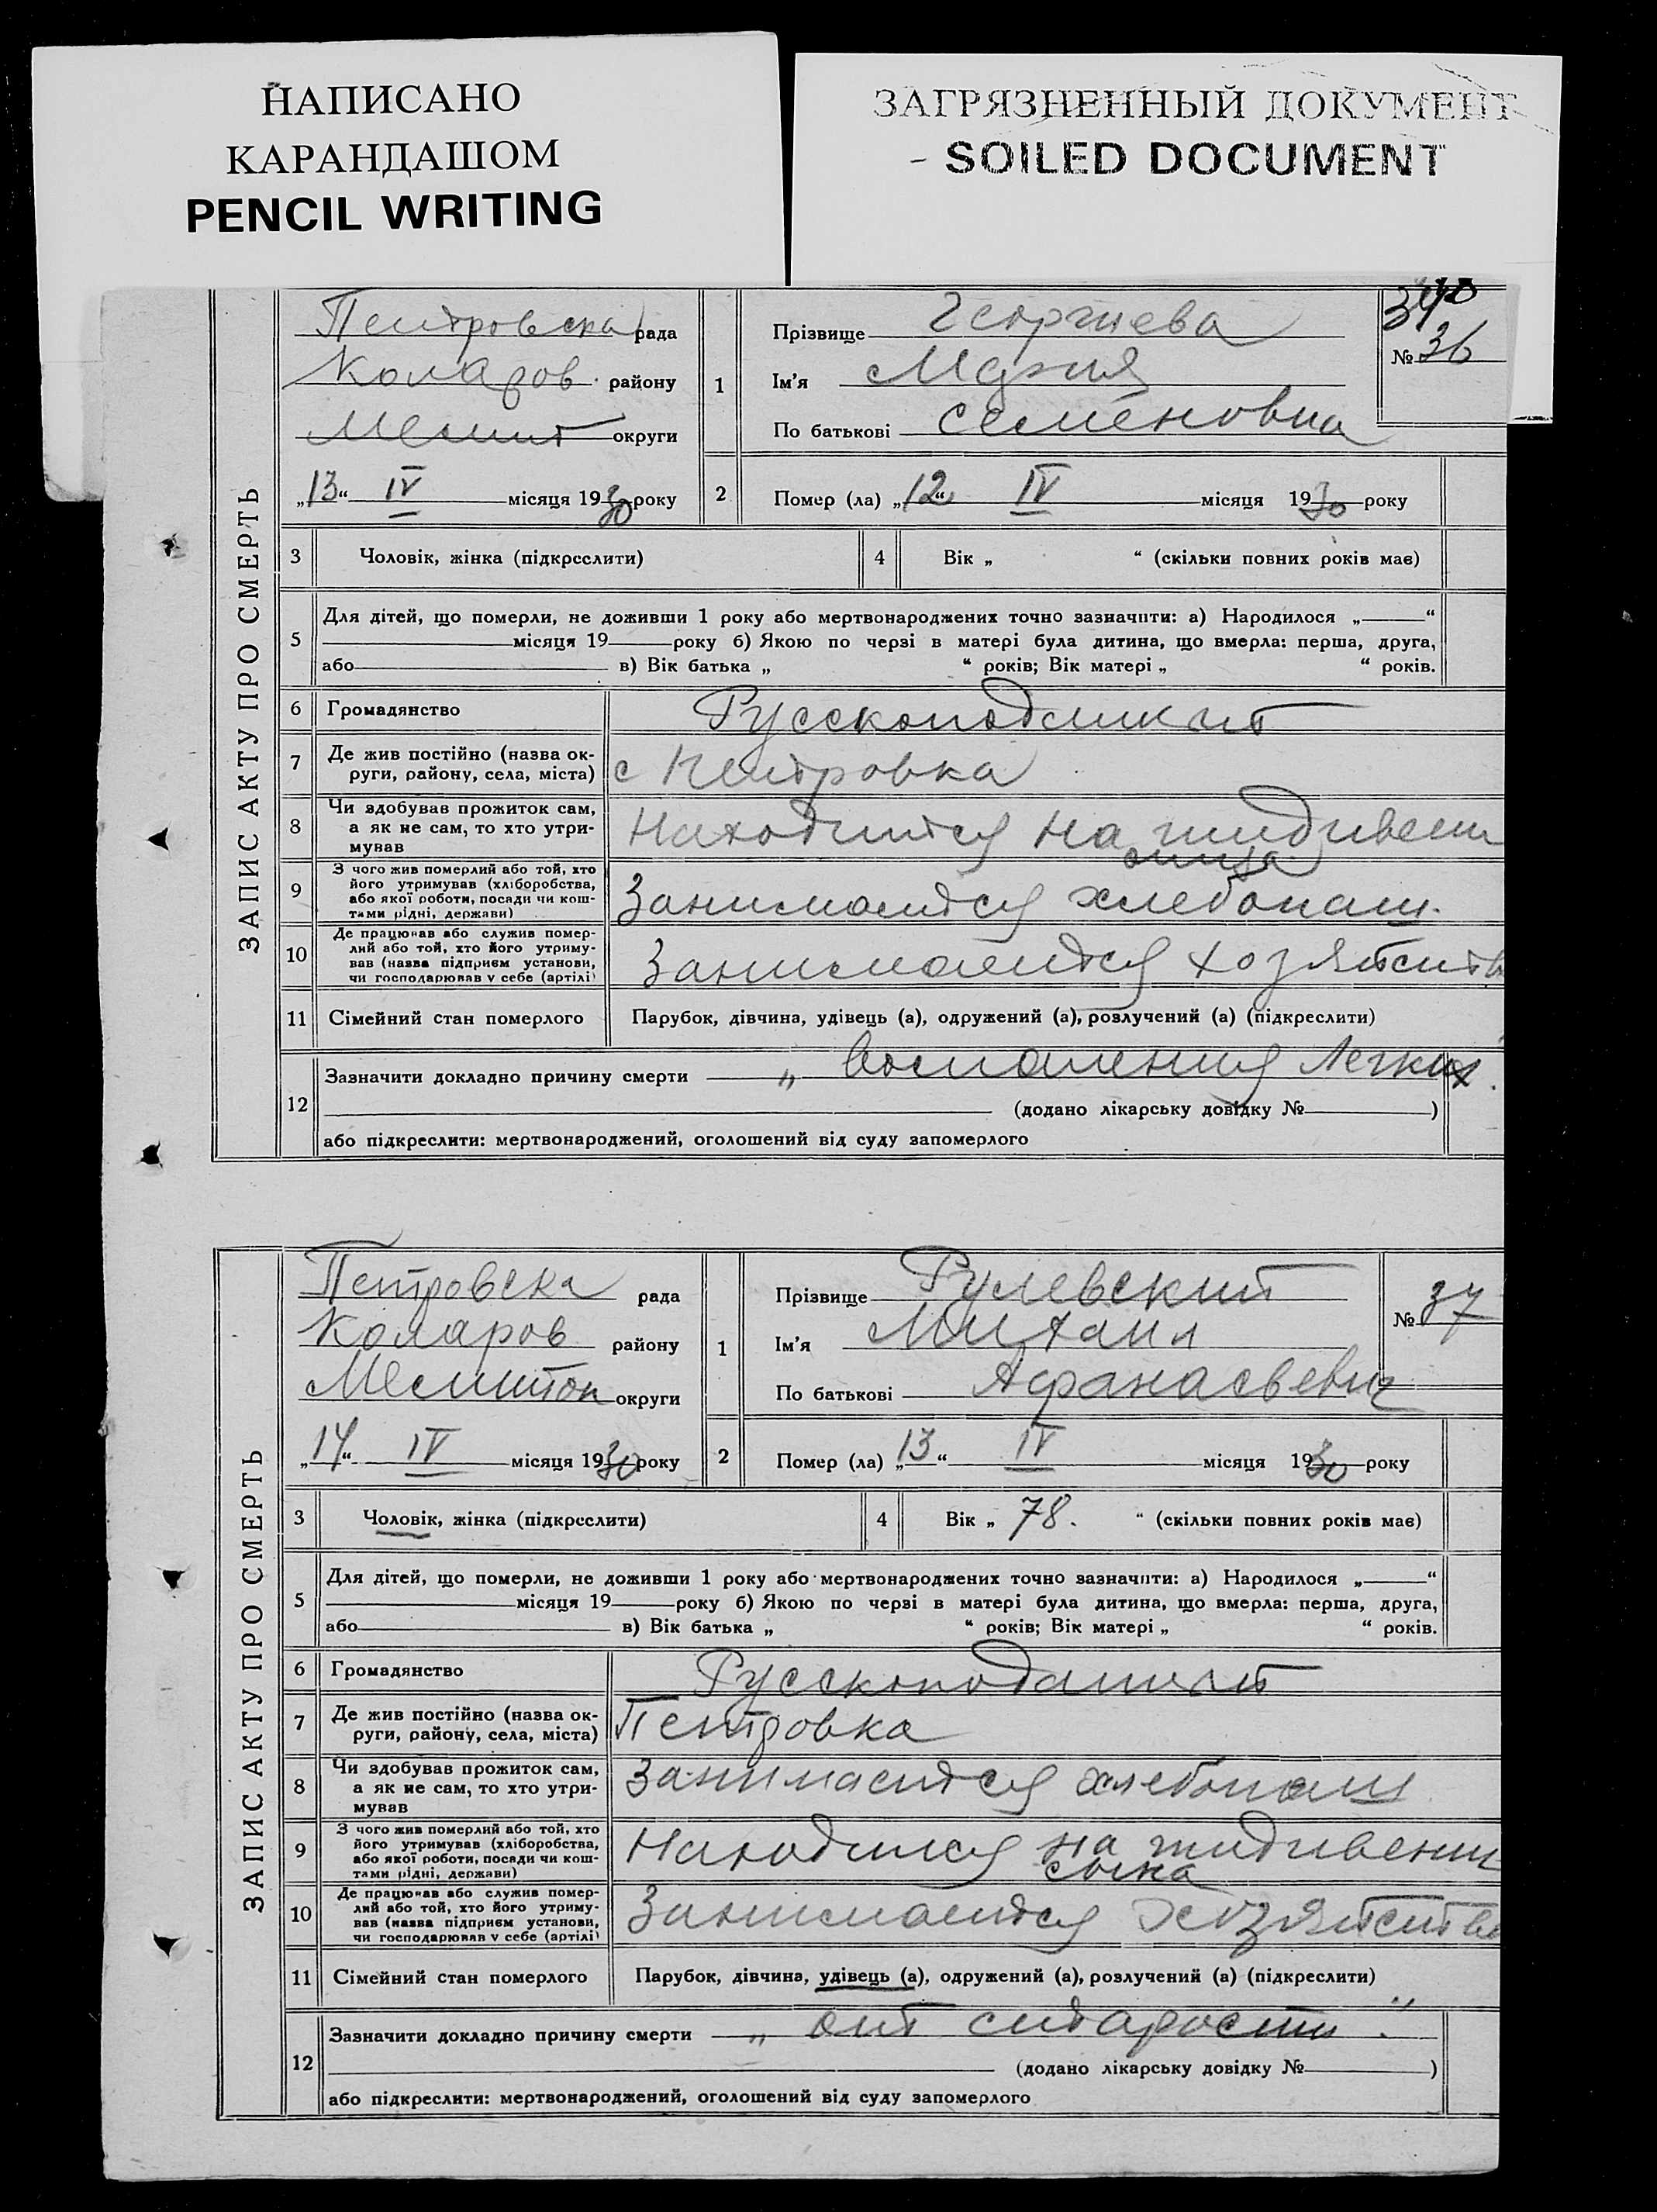 НАПИСАНО
КАРАНДАШОМ
PENCIL WRITING
ЗАГРЯЗНЕННЫЙ ДОКУМЕНТ
- SOILED DOCUMENT
ЗАПИС АКТУ ПРО СМЕРТЬ
Петровска рада
Коларов. району
Мелит округи
„13“ IV місяця 1930 року
1
Прізвище Георгиева
Ім'я Мария
По батькові Семеновна
340
№ 36
2
Помер (ла) „12“ IV місяця 1930 року
3 Чоловік, жінка (підкреслити)
4 Вік „ “ (скільки повних років має)
5
Для дітей, що померли, не доживши 1 року або мертвонароджених точно зазначити: а) Народилося „ “
місяця 19 року б) Якою по черзі в матері була дитина, що вмерла: перша, друга,
або в) Вік батька „ “ років; Вік матері „ “ років.
6 Громадянство Русскоподаният
7 Де жив постійно (назва ок-
руги, району, села, міста) с Петровка
8 Чи здобував прожиток сам,
а як не сам, то хто утри-
мував
Находится на иждивени
9 З чого жив померлий або той, хто
його утримував (хліборобства,
або якої роботи, посади чи кош-
тами рідні, держави)
Занимается хлебопаш.
10 Де працював або служив помер-
лий або той, хто його утриму-
вав (назва підприєм установи,
чи господарював у себе (артілі)
Занимается хозяйств
11 Сімейний стан померлого Парубок, дівчина, удівець (а), одружений (а), розлучений (а) (підкреслити)
12
Зазначити докладно причину смерти „ воспаления Легких.
(додано лікарську довідку № )
або підкреслити: мертвонароджений, оголошений від суду запомерлого
ЗАПИС АКТУ ПРО СМЕРТЬ
Петровска рада
Коларов району
Мелитоп округи
„14“ IV місяця 1930 року
1
Прізвище Рулевский
Ім'я Михаил
По батькові Афанасьевич
№ 37
2
Помер (ла) „13“ IV місяця 1930 року
3 Чоловік, жінка (підкреслити)
4 Вік „ 78. “ (скільки повних років має)
5
Для дітей, що померли, не доживши 1 року або мертвонароджених точно зазначити: а) Народилося „ “
місяця 19 року б) Якою по черзі в матері була дитина, що вмерла: перша, друга,
або в) Вік батька „ “ років; Вік матері „ “ років.
6 Громадянство Русскоподаният
7 Де жив постійно (назва ок-
руги, району, села, міста) Петровка
8 Чи здобував прожиток сам,
а як не сам, то хто утри-
мував
Занимается хлебопаш
9 З чого жив померлий або той, хто
його утримував (хліборобства,
або якої роботи, посади чи кош-
тами рідні, держави)
Находился на иждивени
сына
10 Де працював або служив помер-
лий або той, хто його утриму-
вав (назва підприєм установи,
чи господарював у себе (артілі)
Занимается Хозяйств
11 Сімейний стан померлого Парубок, дівчина, удівець (а), одружений (а), розлучений (а) (підкреслити)
12
Зазначити докладно причину смерти „ от старости."
(додано лікарську довідку № )
або підкреслити: мертвонароджений, оголошений від суду запомерлого